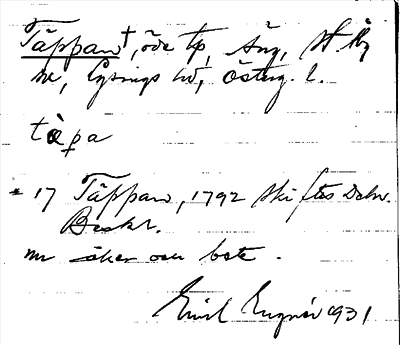 Täppan†, öde tp, Äng, St. Åby
sn, Lysings hd, Österg. l.
tɑ̀p̣a
17 Täppan, 1792 Skiftes Dokn.
Beskr.
nu åker och bete.
Emil Engnér 1931